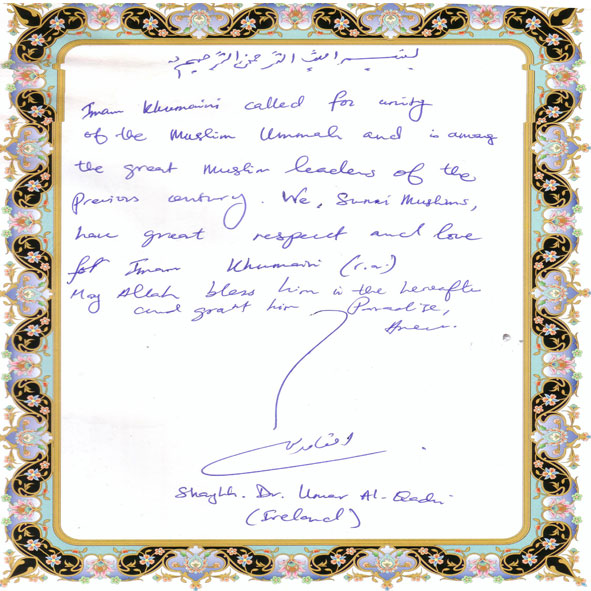 بسم الله الرحمن الرحيم
Imam Khumaini called for unity
of the Muslim Ummah and is among
the great Muslim leaders of the
Previous century. We, Sunni Muslims,
have great respect and love
for Imam Khumaini (r.a.)
May Allah bless him in the hereafter
and grant him Paradise,
Ameen.
القادري
Shaykh. Dr. Umar Al-Qadri
(Ireland)